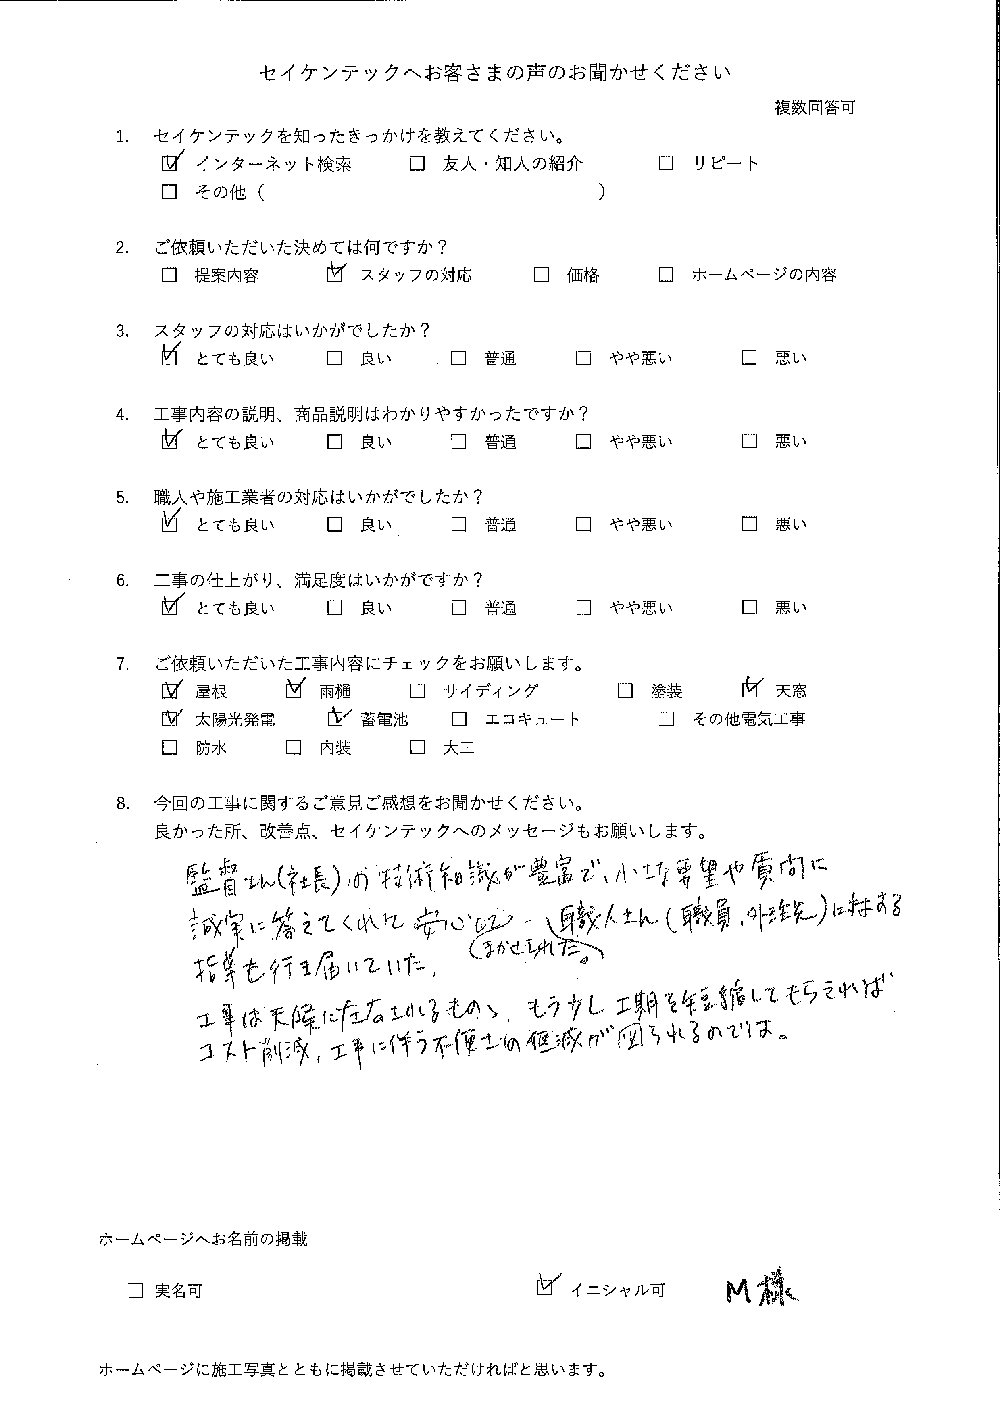 セイケンテックへお客さまの声のお聞かせください
複数回答可
1. セイケンテックを知ったきっかけを教えてください。
☑ インターネット検索 ☐ 友人・知人の紹介 ☐ リピート
☐ その他（ ）
2. ご依頼いただいた決めては何ですか？
☐ 提案内容 ☑ スタッフの対応 ☐ 価格 ☐ ホームページの内容
3. スタッフの対応はいかがでしたか？
☑ とても良い ☐ 良い ☐ 普通 ☐ やや悪い ☐ 悪い
4. 工事内容の説明、商品説明はわかりやすかったですか？
☑ とても良い ☐ 良い ☐ 普通 ☐ やや悪い ☐ 悪い
5. 職人や施工業者の対応はいかがでしたか？
☑ とても良い ☐ 良い ☐ 普通 ☐ やや悪い ☐ 悪い
6. 工事の仕上がり、満足度はいかがですか？
☑ とても良い ☐ 良い ☐ 普通 ☐ やや悪い ☐ 悪い
7. ご依頼いただいた工事内容にチェックをお願いします。
☑ 屋根 ☑ 雨樋 ☐ サイディング ☐ 塗装 ☑ 天窓
☑ 太陽光発電 ☑ 蓄電池 ☐ エコキュート ☐ その他電気工事
☐ 防水 ☐ 内装 ☐ 大工
8. 今回の工事に関するご意見ご感想をお聞かせください。
良かった所、改善点、セイケンテックへのメッセージもお願いします。
監督さん(社長)の技術知識が豊富で、小さな要望や質問に
誠実に答えてくれて安心して 職人さん(職員、外注先)に対する
まかせられた。
指導も行き届いていた。
工事は天候に左右されるものの、もう少し工期を短縮してもらえれば
コスト削減、工事に伴う不便さの低減が図られるのでは。
ホームページへお名前の掲載
☐ 実名可 ☑ イニシャル可 M様
ホームページに施工写真とともに掲載させていただければと思います。